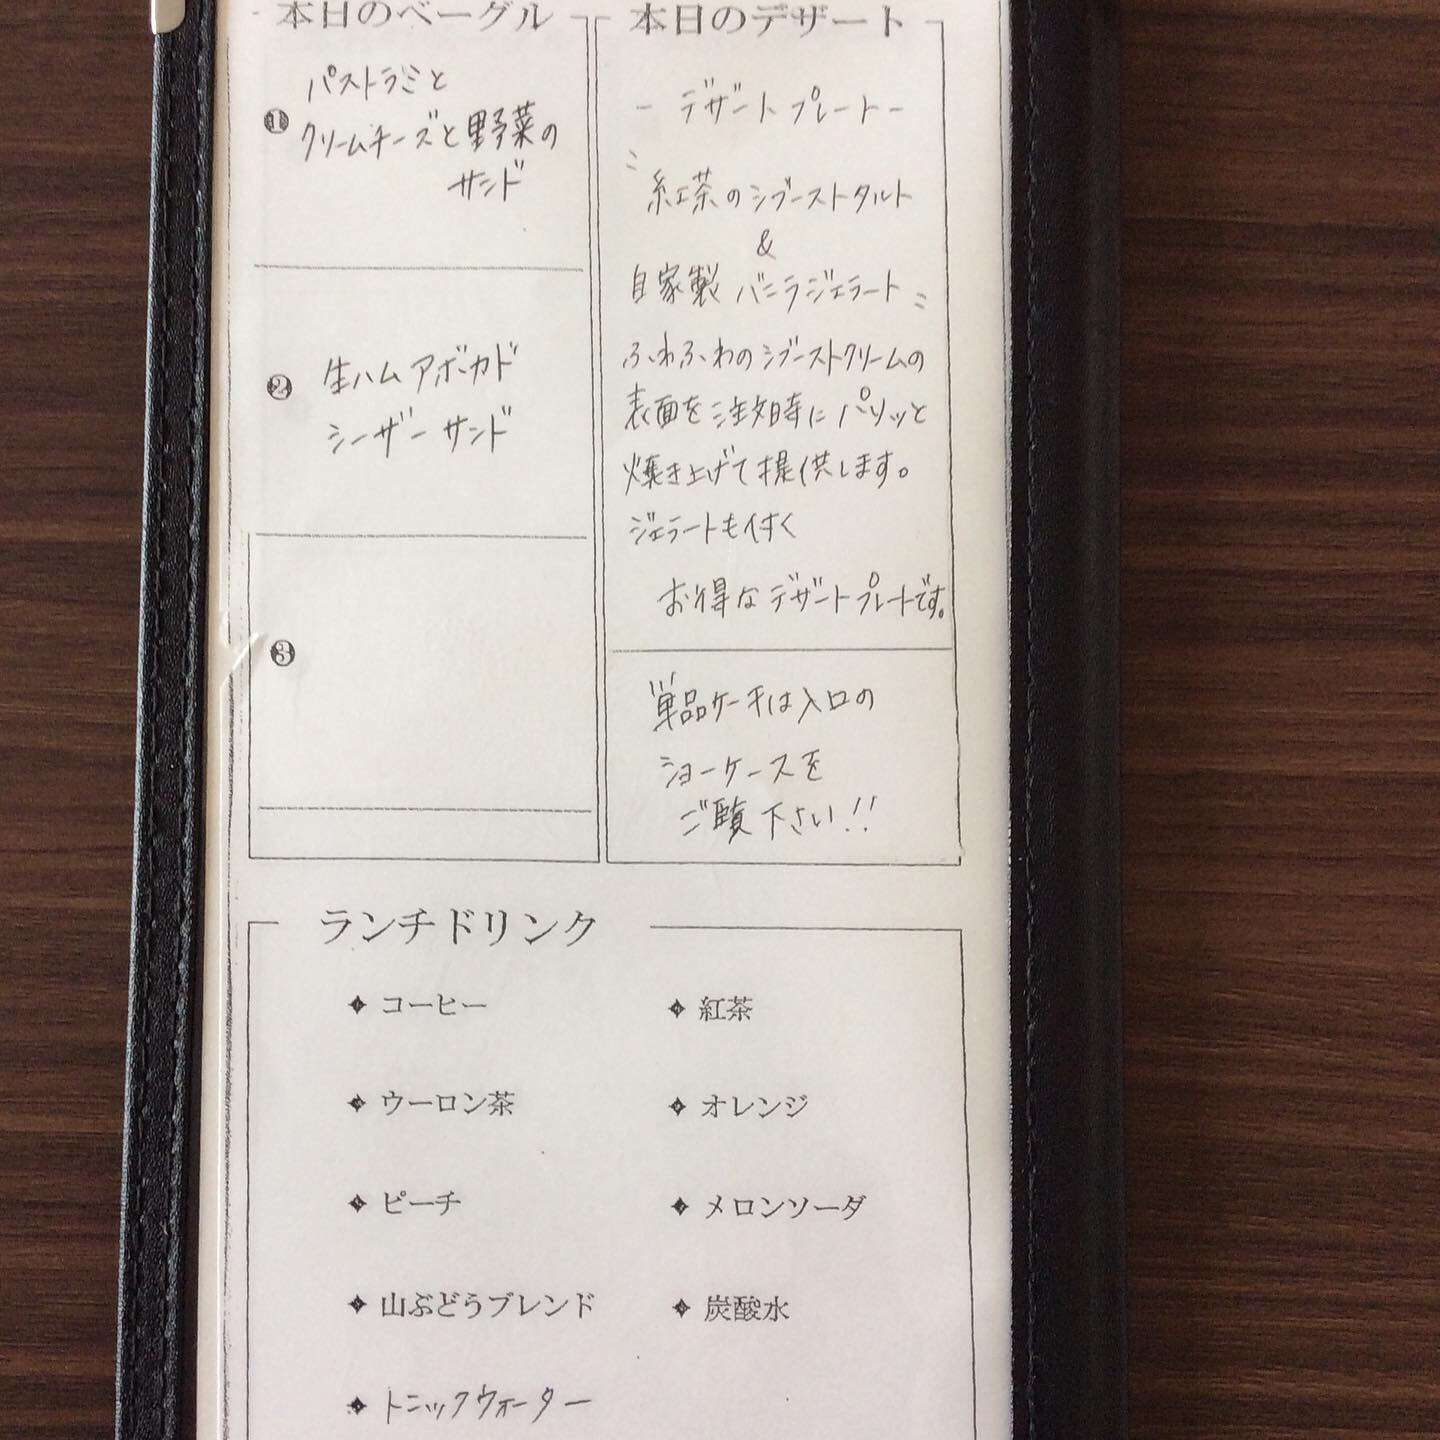 本日のベーグル
❶ パストラミと
クリームチーズと野菜の
サンド
❷ 生ハムアボカド
シーザーサンド
❸
本日のデザート
- デザートプレート -
〃紅茶のシブーストタルト
&
自家製バニラジェラート〃
ふわふわのシブーストクリームの
表面を注文時にパリッと
焼き上げて提供します。
ジェラートも付く
お得なデザートプレートです。
単品ケーキは入口の
ショーケースを
ご覧下さい!!
ランチドリンク
コーヒー
紅茶
ウーロン茶
オレンジ
ピーチ
メロンソーダ
山ぶどうブレンド
炭酸水
トニックウォーター